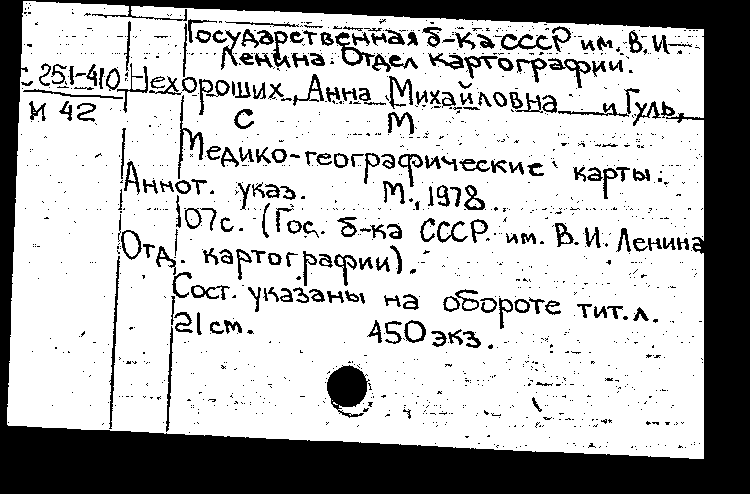 Государственная б-ка СССР им. В.И.
Ленина. Отдел картографии.
С 251-410 Нехороших, Анна Михайловна и Гуль,
М 42 С М
Медико-географические карты.
Аннот. указ. М., 1978.
107с. (Гос. б-ка СССР им. В.И. Ленина
Отд. картографии).
Сост. указаны на обороте тит.л.
21 см. 450 экз.